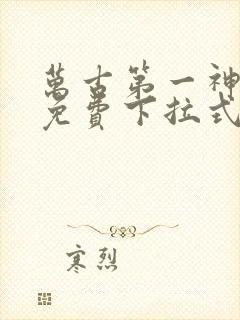 萬古第一神
免費下拉式
寒烈